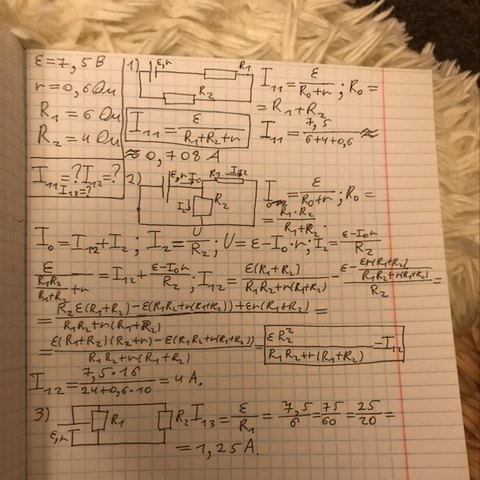 ε=7,5 В
r=0,6 Ом
R₁ = 6 Ом
R₂ = 4 Ом
I₁₁=? I₁₂=?
I₁₃=?
1) ε,r R₁ R₂
I₁₁ = ε/(R₀+r); R₀ =
= R₁+R₂
I₁₁ = ε/(R₁+R₂+r)
I₁₁ = 7,5/(6+4+0,6) ≈
≈ 0,708 А
2) ε,r I₀ R₁ I₁₂ I₂ R₂ U
I₀ = ε/(R₀+r); R₀ =
= R₁·R₂/(R₁+R₂).
I₀ = I₁₂+I₂; I₂ = U/R₂; U = ε−I₀·r; I₂ = (ε−I₀r)/R₂
ε/(R₁R₂/(R₁+R₂)+r) = I₁₂ + (ε−I₀r)/R₂; I₁₂ = ε(R₁+R₂)/(R₁R₂+r(R₁+R₂)) − (ε − εr(R₁+R₂)/(R₁R₂+r(R₁+R₂)))/R₂ =
= (R₂ε(R₁+R₂)−ε(R₁R₂+r(R₁+R₂))+εr(R₁+R₂))/(R₁R₂+r(R₁+R₂)) =
= (ε(R₁+R₂)(R₂+r)−ε(R₁R₂+r(R₁+R₂)))/(R₁R₂+r(R₁+R₂)) = εR₂²/(R₁R₂+r(R₁+R₂)) = I₁₂
I₁₂ = 7,5·16/(24+0,6·10) = 4 А.
3) ε,r R₁ R₂ I₁₃ = ε/R₁ = 7,5/6 = 75/60 = 25/20 =
= 1,25 А.